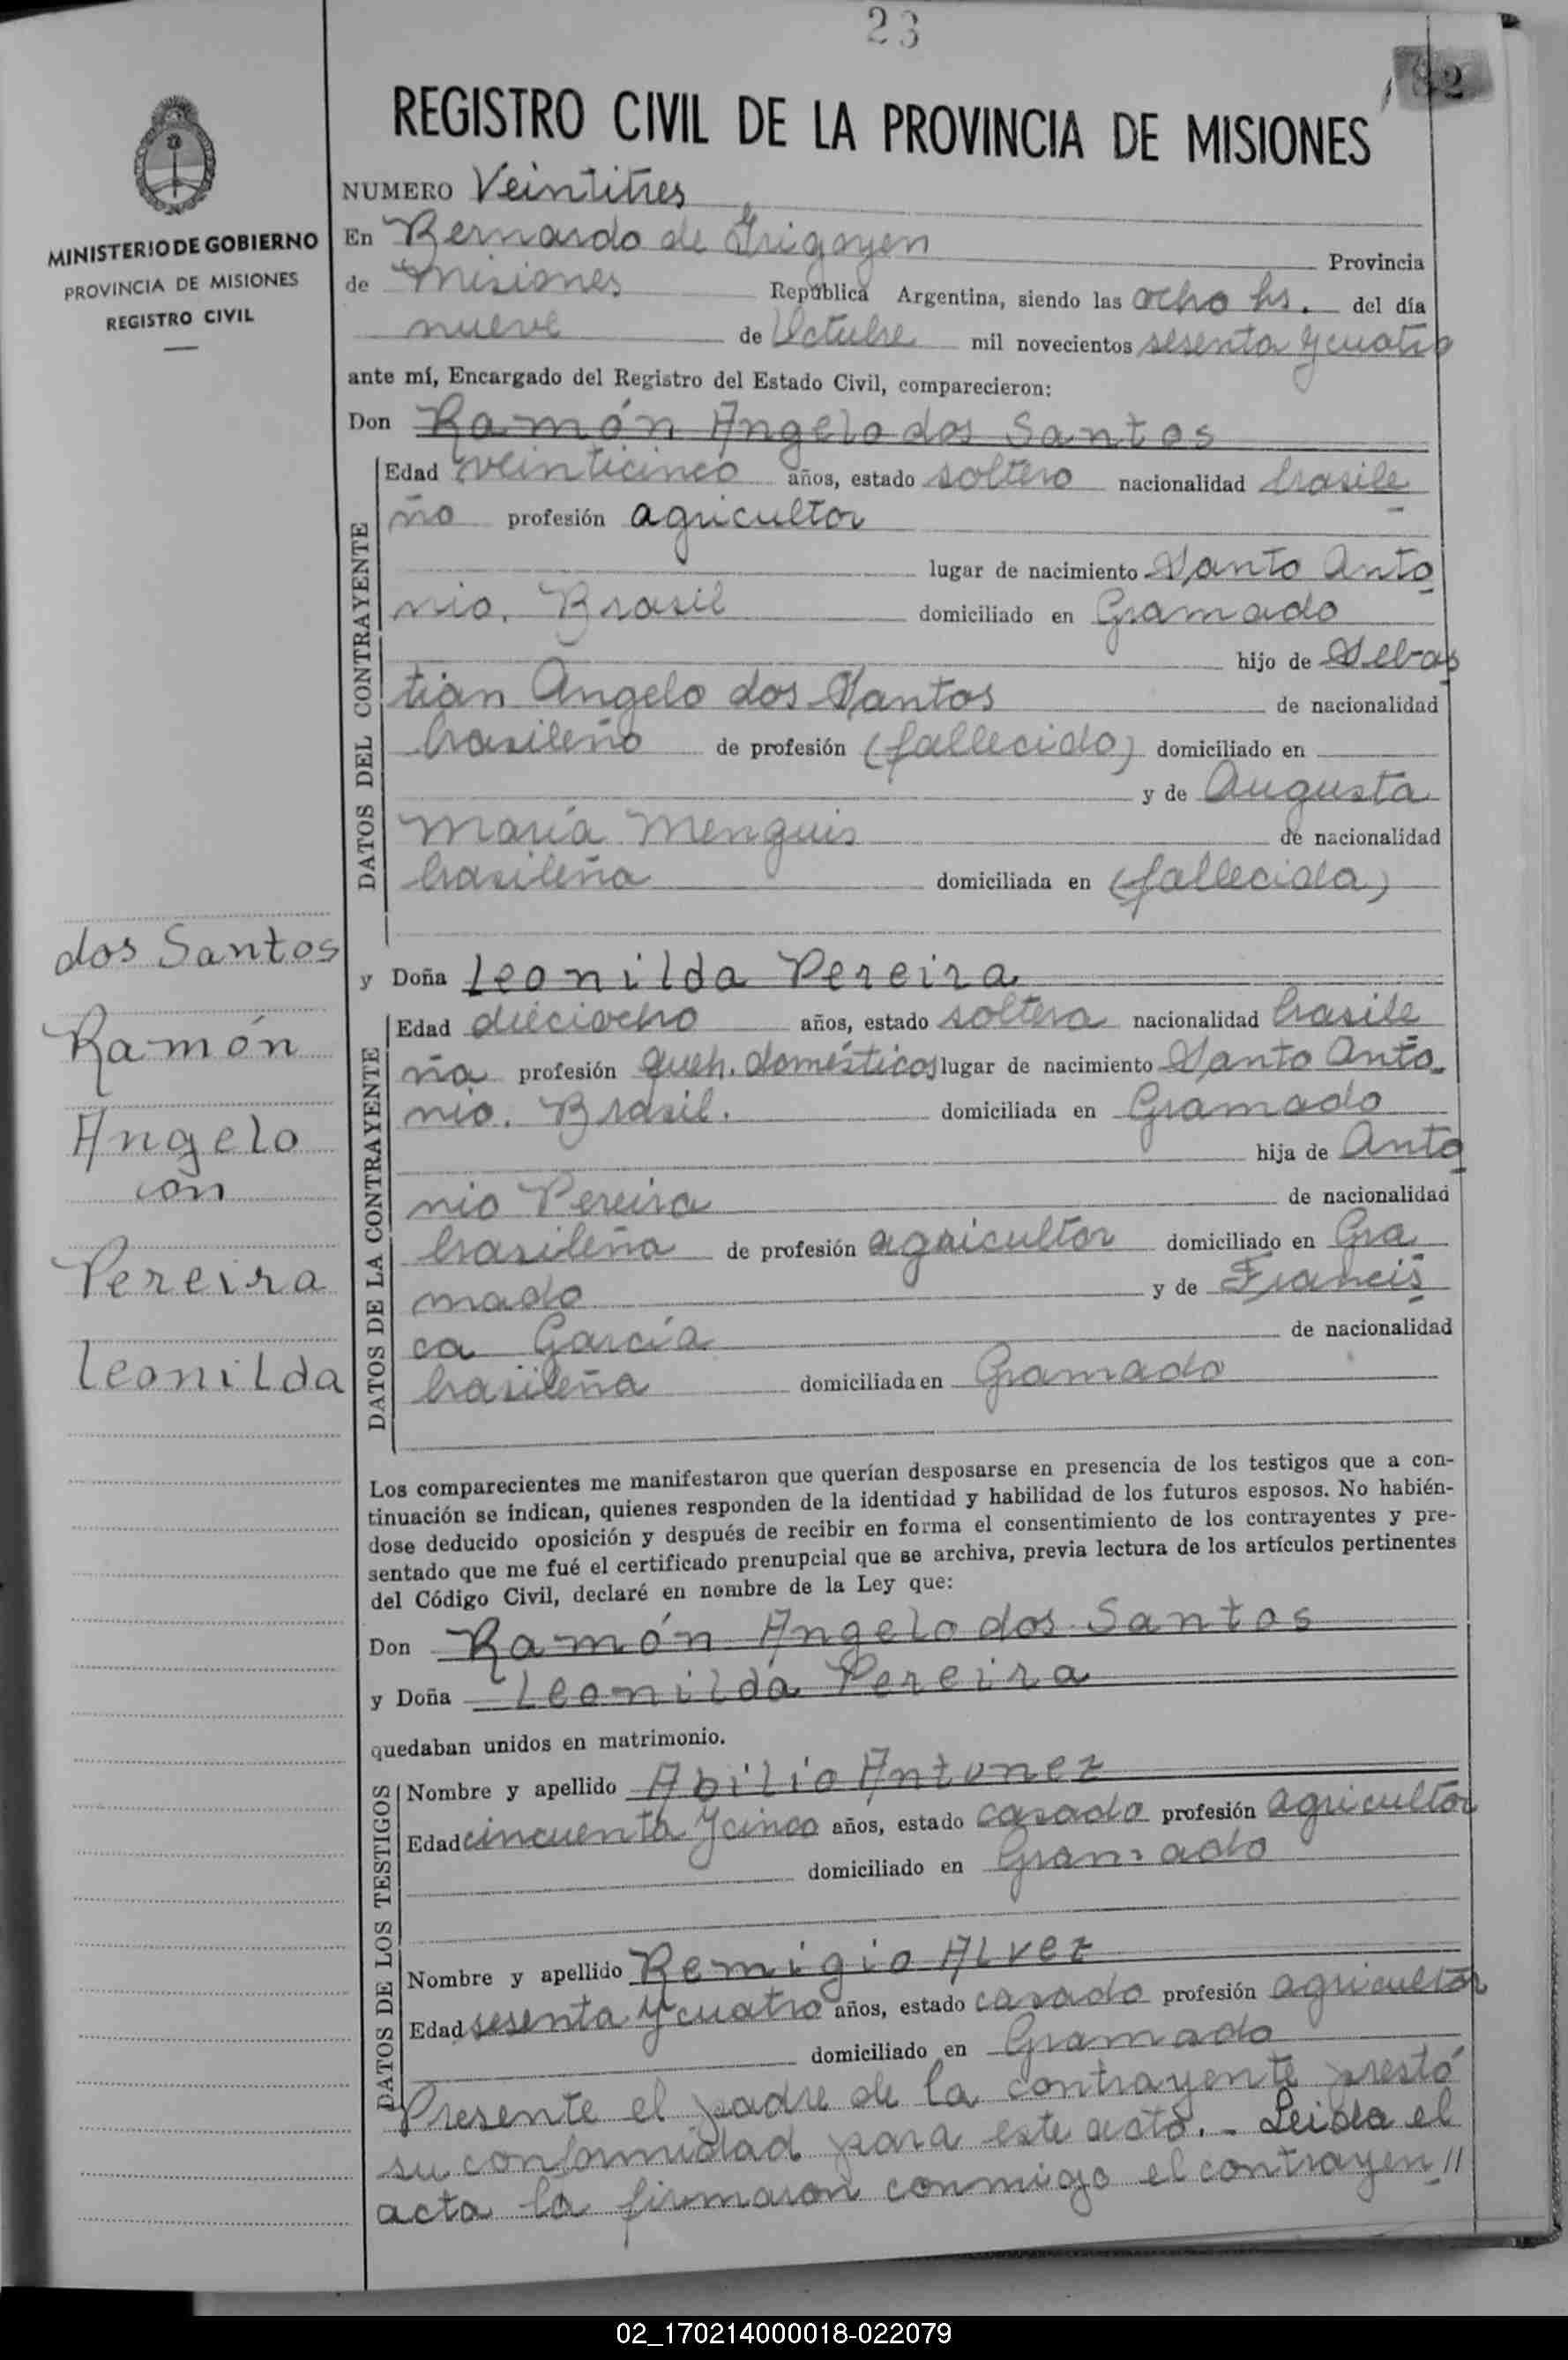 23
182
REGISTRO CIVIL DE LA PROVINCIA DE MISIONES
MINISTERIO DE GOBIERNO
PROVINCIA DE MISIONES
REGISTRO CIVIL
NUMERO Veintitres
En Bernardo de Irigoyen Provincia
de Misiones República Argentina, siendo las ocho hs. del día
nueve de Octubre mil novecientos sesenta y cuatro
ante mí, Encargado del Registro del Estado Civil, comparecieron:
Don Ramón Angelo dos Santos
DATOS DEL CONTRAYENTE
Edad veinticinco años, estado soltero nacionalidad brasile
ño profesión agricultor
lugar de nacimiento Santo Anto
nio. Brasil domiciliado en Gramado
hijo de Sebas
tian Angelo dos Santos de nacionalidad
brasileño de profesión (fallecido) domiciliado en
y de Augusta
María Menguis de nacionalidad
brasileña domiciliada en (fallecida)
dos Santos
Ramón
Angelo
con
Pereira
Leonilda
y Doña Leonilda Pereira
DATOS DE LA CONTRAYENTE
Edad dieciocho años, estado soltera nacionalidad brasile
ña profesión queh. domésticos lugar de nacimiento Santo Anto
nio. Brasil. domiciliada en Gramado
hija de Anto
nio Pereira de nacionalidad
brasileña de profesión agricultor domiciliado en Gra
mado y de Francis
ca García de nacionalidad
brasileña domiciliada en Gramado
Los comparecientes me manifestaron que querían desposarse en presencia de los testigos que a con-
tinuación se indican, quienes responden de la identidad y habilidad de los futuros esposos. No habién-
dose deducido oposición y después de recibir en forma el consentimiento de los contrayentes y pre-
sentado que me fué el certificado prenupcial que se archiva, previa lectura de los artículos pertinentes
del Código Civil, declaré en nombre de la Ley que:
Don Ramón Angelo dos Santos
y Doña Leonilda Pereira
quedaban unidos en matrimonio.
DATOS DE LOS TESTIGOS
Nombre y apellido Abilio Antunez
Edad cincuenta y cinco años, estado casado profesión agricultor
domiciliado en Gramado
Nombre y apellido Remigio Alvez
Edad sesenta y cuatro años, estado casado profesión agricultor
domiciliado en Gramado
Presente el padre de la contrayente prestó
su conformidad para este acto. - Leida el
acta la firmaron conmigo el contrayen //
02_170214000018-022079